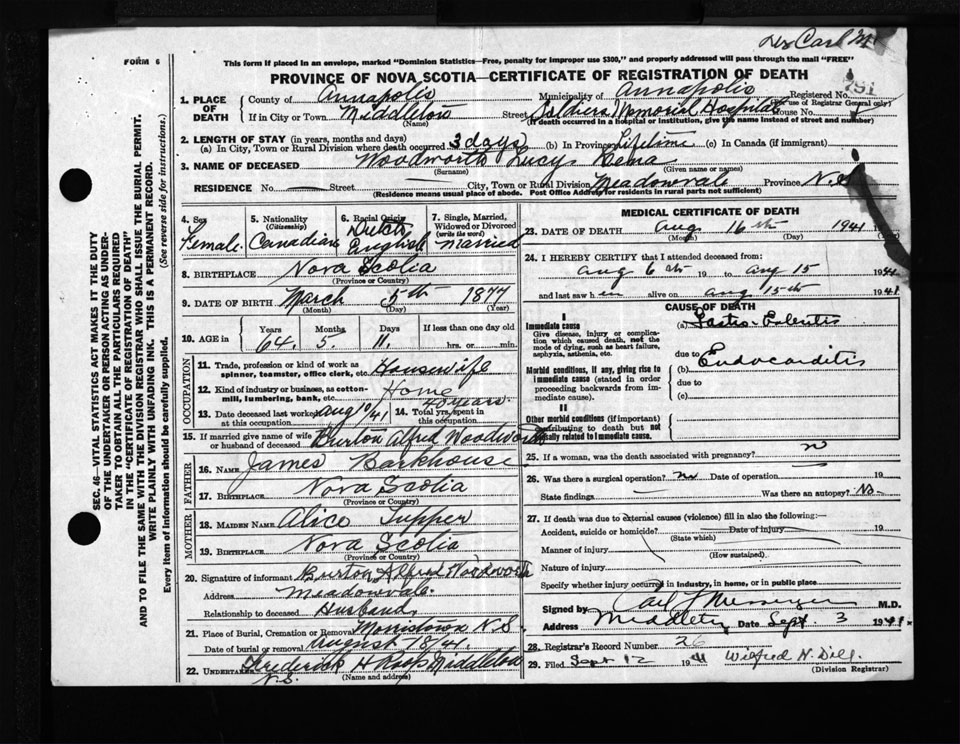 Carl M
FORM 6
This form if placed in an envelope, marked "Dominion Statistics—Free, penalty for improper use $300," and properly addressed will pass through the mail "FREE"
PROVINCE OF NOVA SCOTIA—CERTIFICATE OF REGISTRATION OF DEATH
Registered No. 791
(For use of Registrar General only)
1. PLACE OF DEATH
County of Annapolis Municipality of Annapolis
If in City or Town Middleton (Name) Street Soldiers Memorial Hospital House No.
(If death occurred in a hospital or institution, give the name instead of street and number)
2. LENGTH OF STAY (in years, months and days)
(a) In City, Town or Rural Division where death occurred 3 days (b) In Province Lifetime (c) In Canada (if immigrant)
3. NAME OF DECEASED Woodworth Lucy
(Surname) (Given name or names)
RESIDENCE No. Street City, Town or Rural Division Meadowvale Province N.S.
(Residence means usual place of abode. Post Office Address for residents in rural parts not sufficient)
SEC. 46—VITAL STATISTICS ACT MAKES IT THE DUTY
OF THE UNDERTAKER OR PERSON ACTING AS UNDERTAKER TO OBTAIN ALL THE PARTICULARS REQUIRED
IN THE "CERTIFICATE OF REGISTRATION OF DEATH"
AND TO FILE THE SAME WITH THE DIVISION REGISTRAR WHO SHALL ISSUE THE BURIAL PERMIT.
WRITE PLAINLY WITH UNFADING INK. THIS IS A PERMANENT RECORD.
Every item of Information should be carefully supplied. (See reverse side for instructions.)
4. Sex Female
5. Nationality (Citizenship) Canadian
6. Racial Origin Dutch English
7. Single, Married, Widowed or Divorced (write the word) Married
8. BIRTHPLACE Nova Scotia
(Province or Country)
9. DATE OF BIRTH March 5th 1877
(Month) (Day) (Year)
10. AGE Years 64 Months 5 Days 11 If less than one day old hrs. or min.
OCCUPATION
11. Trade, profession or kind of work as spinner, teamster, office clerk, etc. Housewife
12. Kind of industry or business, as cotton-mill, lumbering, bank, etc. Home
13. Date deceased last worked at this occupation Aug 10/41 14. Total yrs. spent in this occupation 40 years
15. If married give name of wife or husband of deceased Burton Alfred Woodworth
FATHER
16. NAME James Barkhouse
17. BIRTHPLACE Nova Scotia
(Province or Country)
MOTHER
18. MAIDEN NAME Alice Tupper
19. BIRTHPLACE Nova Scotia
(Province or Country)
20. Signature of informant Burton Alfred Woodworth
Address Meadowvale
Relationship to deceased Husband
21. Place of Burial, Cremation or Removal Morristown N.S.
Date of burial or removal August 18/41.
22. UNDERTAKER Frederick H Roop Middleton N.S.
(Name and address)
MEDICAL CERTIFICATE OF DEATH
23. DATE OF DEATH Aug 16th 1941
(Month) (Day)
24. I HEREBY CERTIFY that I attended deceased from:
Aug 6th 19 to Aug 15 1941
and last saw h er alive on Aug 15th 1941
CAUSE OF DEATH
I
Immediate cause
Give disease, injury or complication which caused death, not the mode of dying, such as heart failure, asphyxia, asthenia, etc.
(a)
due to
Morbid conditions, if any, giving rise to immediate cause (stated in order proceeding backwards from immediate cause).
(b) Endocarditis
due to
(c)
II
Other morbid conditions (if important) contributing to death but not causally related to Immediate cause.
25. If a woman, was the death associated with pregnancy?
26. Was there a surgical operation? no Date of operation 19
State findings Was there an autopsy? No
27. If death was due to external causes (violence) fill in also the following:—
Accident, suicide or homicide? Date of injury 19
(State which)
Manner of injury
(How sustained)
Nature of injury
Specify whether injury occurred in industry, in home, or in public place
Signed by Carl M.D.
Address Middleton Date Sept. 3 1941
28. Registrar's Record Number 26
29. Filed Sept 12 1941 Wilfred N. Dill
(Division Registrar)